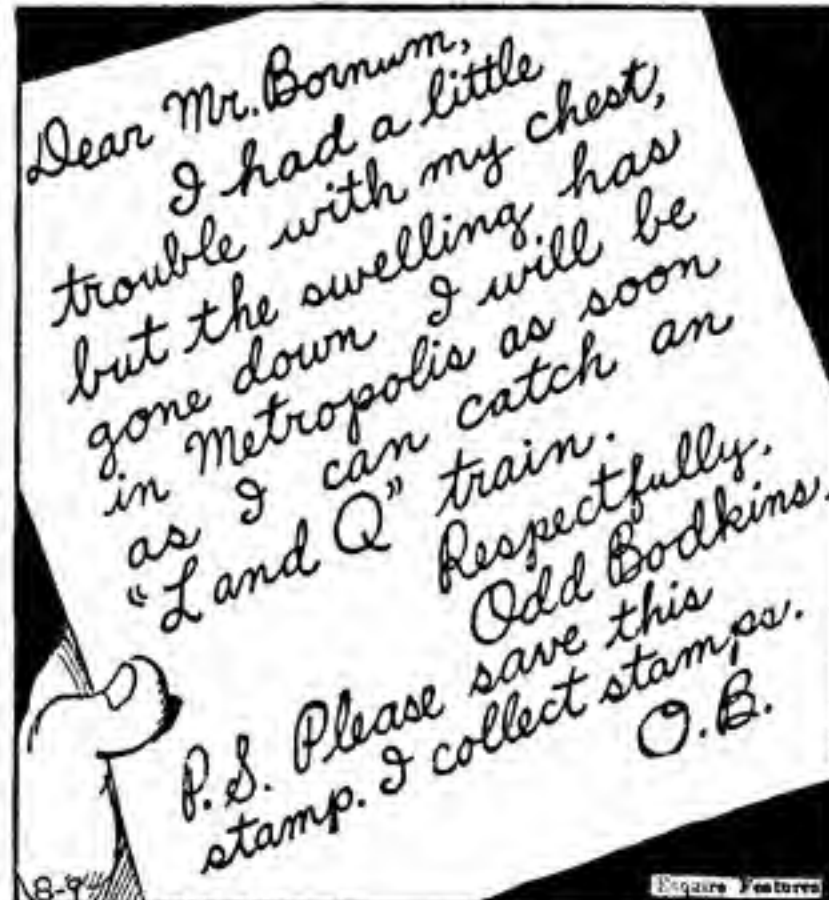 Dear Mr. Bornum,
I had a little
trouble with my chest,
but the swelling has
gone down. I will be
in Metropolis as soon
as I can catch an
"L and Q" train.
Respectfully,
Odd Bodkins.
P.S. Please save this
stamp. I collect stamps.
O.B.
Esquire Features